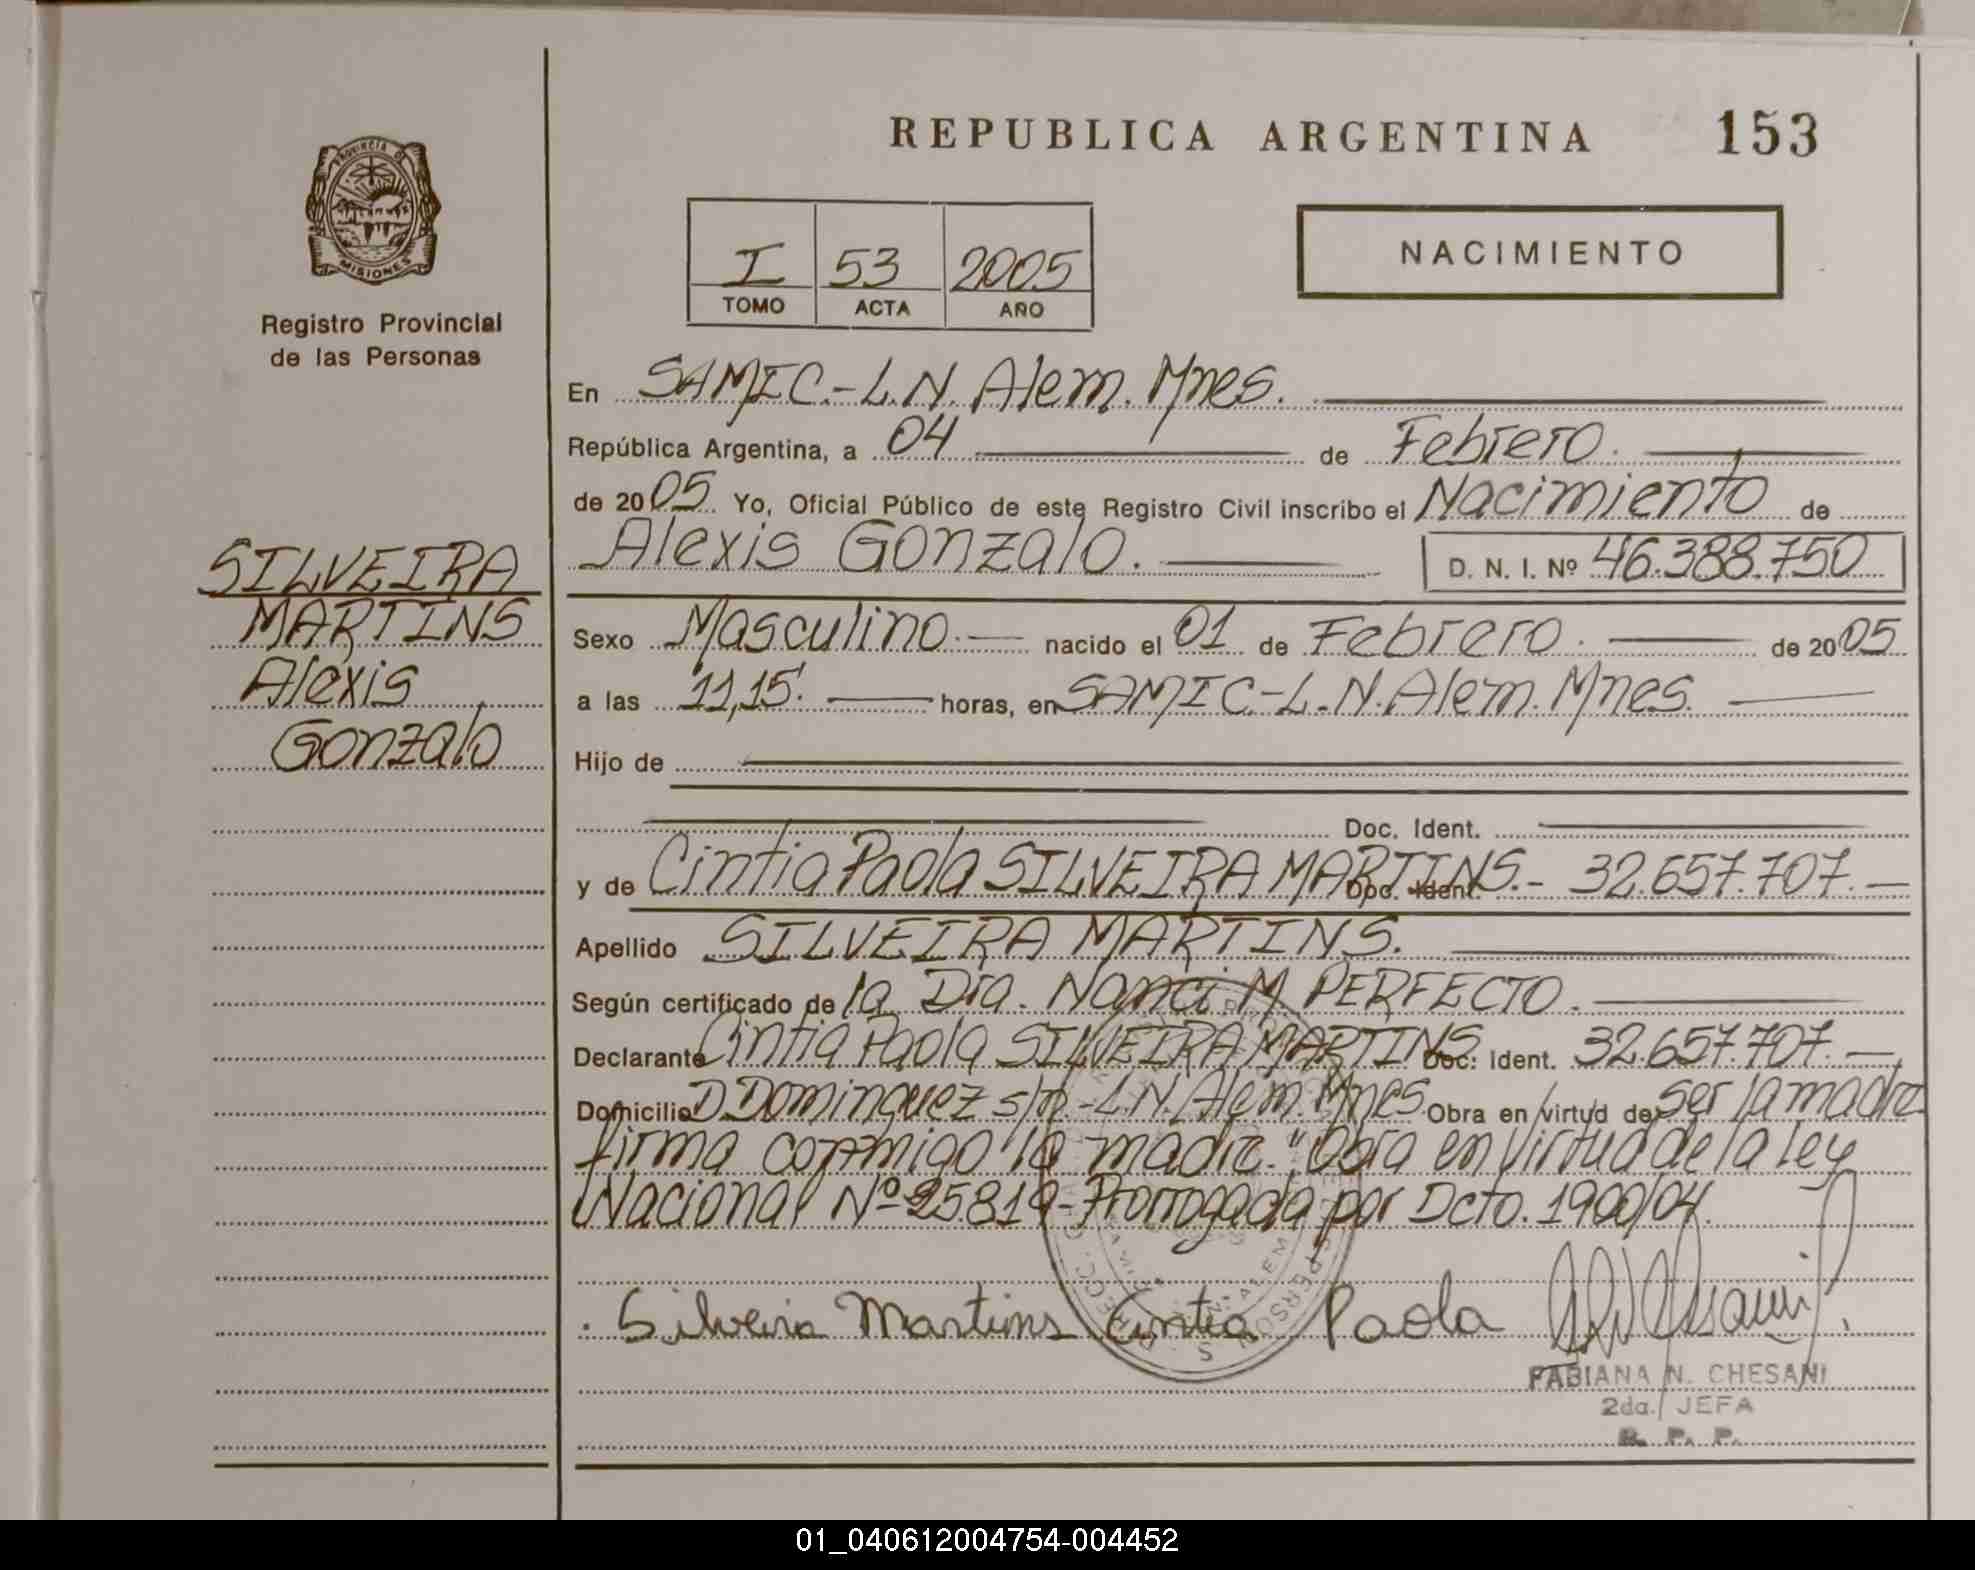 REPUBLICA ARGENTINA 153
PROVINCIA DE
MISIONES
Registro Provincial
de las Personas
I 53 2005
TOMO ACTA AÑO
NACIMIENTO
SILVEIRA
MARTINS
Alexis
Gonzalo
En SAMIC.-L.N. Alem. Mnes.
República Argentina, a 04 de Febrero.
de 2005 Yo, Oficial Público de este Registro Civil inscribo el Nacimiento de
Alexis Gonzalo. D. N. I. Nº 46.388.750
Sexo Masculino.- nacido el 01 de Febrero. de 2005
a las 11,15. horas, en SAMIC-L.N. Alem. Mnes.
Hijo de
Doc. Ident.
y de Cintia Paola SILVEIRA MARTINS.- Doc. Ident. 32.657.707.-
Apellido SILVEIRA MARTINS.
Según certificado de la Dra. Nanci M. PERFECTO.
Declarante Cintia Paola SILVEIRA MARTINS Doc. Ident. 32.657.707.-
Domicilio D Dominguez s/n.-L.N. Alem. Mnes. Obra en virtud de ser la madre
firma conmigo la madre. "Obra en Virtud de la Ley
Nacional Nº 25.819-Prorrogada por Dcto. 1900/04.
Silveira Martins Cintia Paola
FABIANA N. CHESANI
2da. JEFA
R. P. P.
01_040612004754-004452